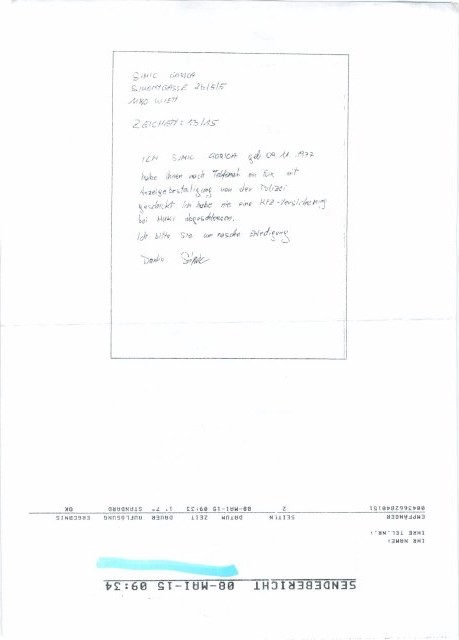 SIMIC GORICA
1180 WIEN
ZEICHEN: 13/15
ICH SIMIC GORICA geb. 1972
habe Ihnen nach Telefonat ein Fax mit
Anzeigebestätigung von der Polizei
geschickt. Ich habe nie eine KFZ-Versicherung
bei abgeschlossen.
Ich bitte Sie um rasche Erledigung
Danke
SENDEBERICHT 08-MAI-15 09:34
IHR NAME:
IHRE TEL.NR.:
EMPFÄNGER SEITEN DATUM ZEIT DAUER AUFLÖSUNG ERGEBNIS
2 08-MAI-15 09:33 STANDARD OK